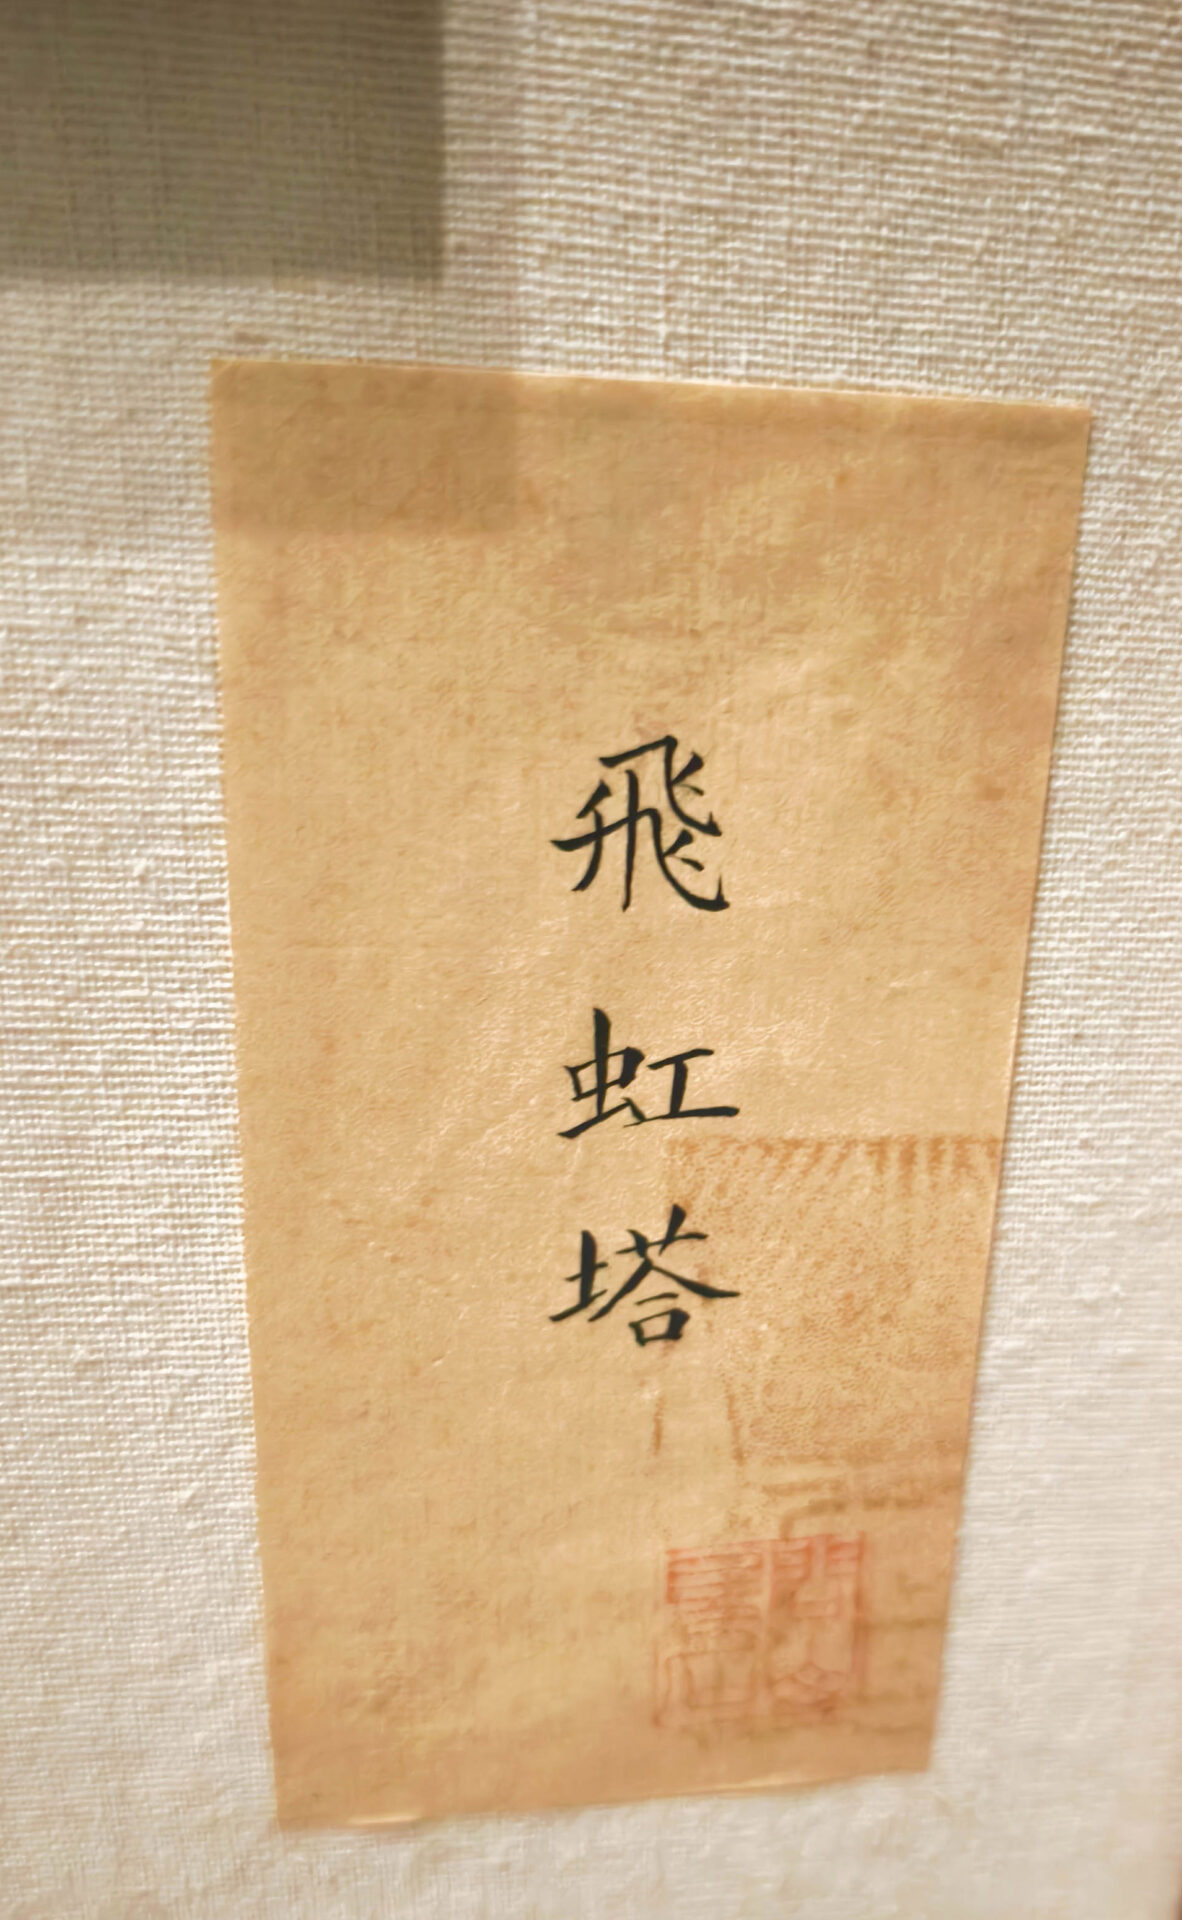 飛虹塔